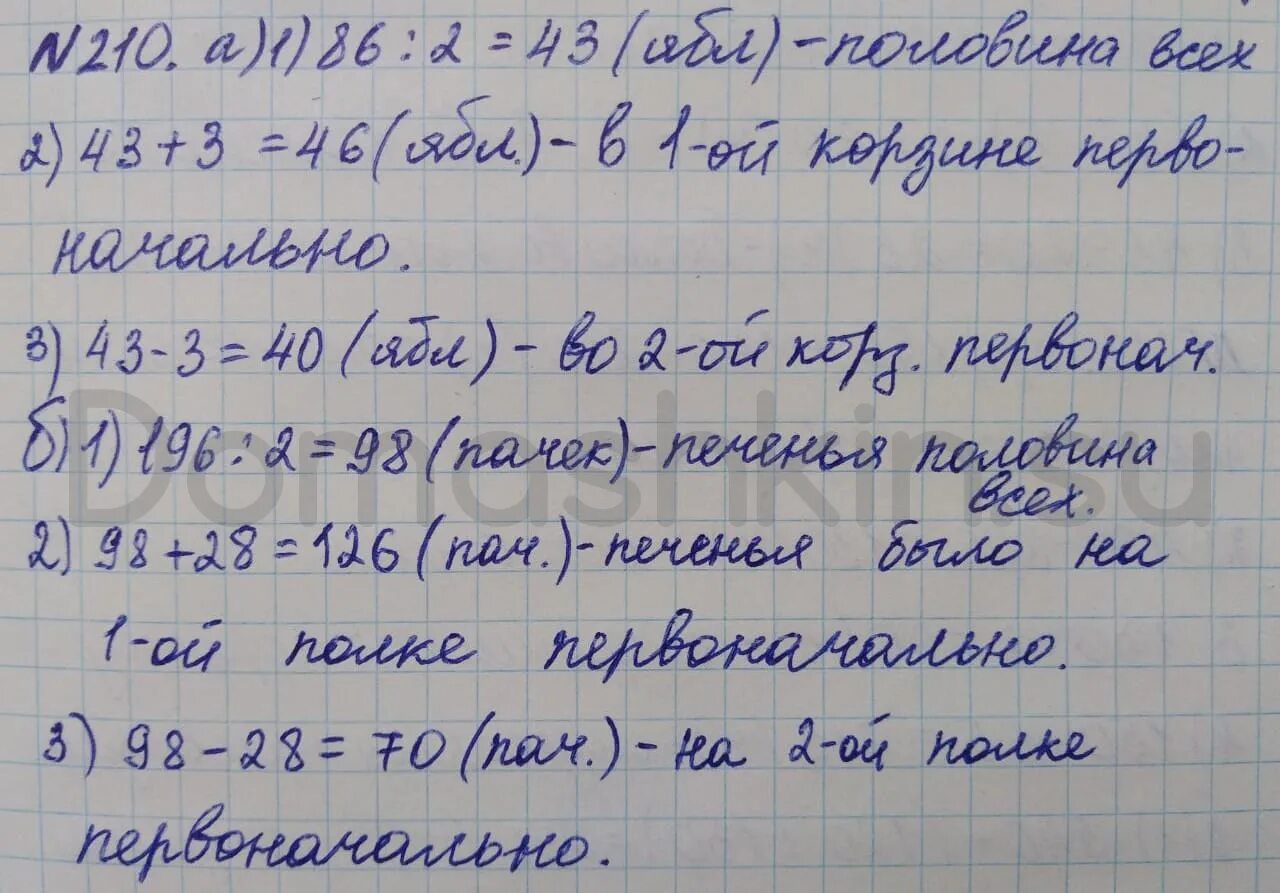 №210. а) 1) 86 : 2 = 43 (ябл) - половина всех
2) 43 + 3 = 46 (ябл.) - в 1-ой корзине перво-
начально.
3) 43 - 3 = 40 (ябл) - во 2-ой корз. первонач.
б) 1) 196 : 2 = 98 (пачек) - печенья половина
всех.
2) 98 + 28 = 126 (пач.) - печенья было на
1-ой полке первоначально.
3) 98 - 28 = 70 (пач.) - на 2-ой полке
первоначально.
Domashkin.su